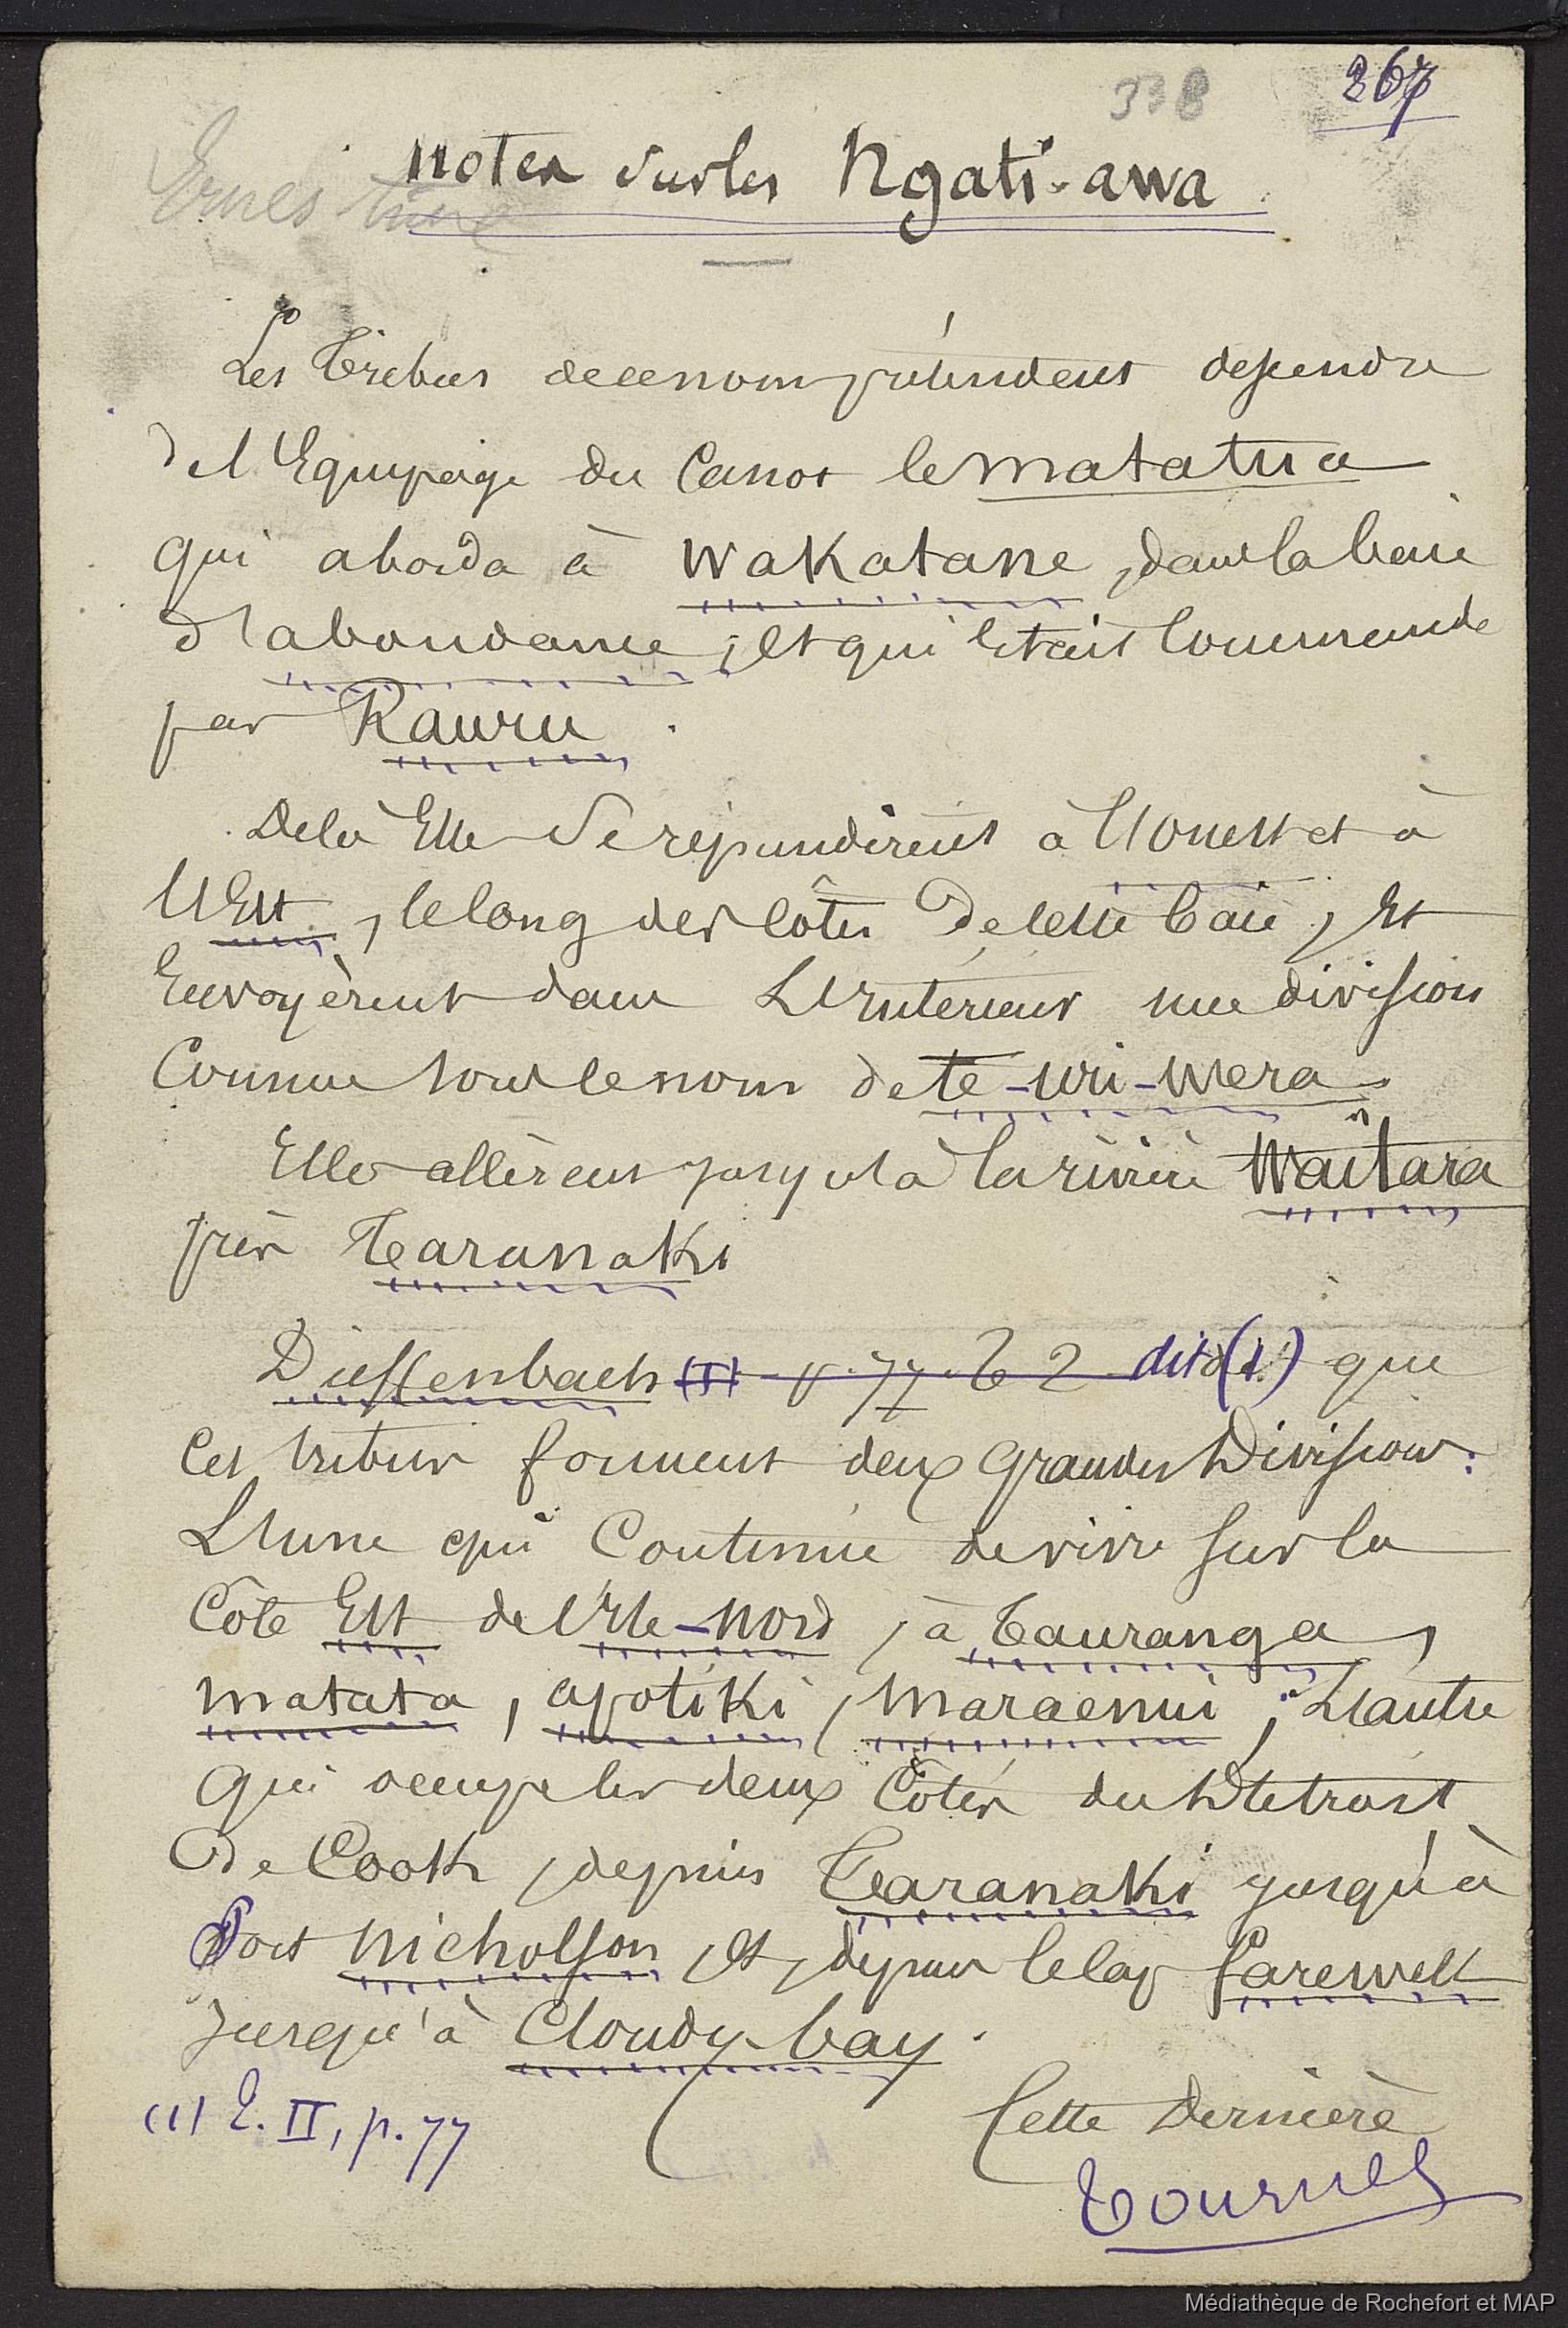 338 267
Ernestine
Notes sur les Ngati-awa
Les Tribus de ce nom prétendent dependre
de l'Equipage du Canot le Matatua
qui aborda à Wakatane, dans la baie
d'abondance, et qui Etait Commandé
par Rauru.
De là Elle Se répandirent à l'Ouest et à
l'Est, le long des Côtes de cette baie, Et
Envoyèrent dans L'Interieur une division
Connue sous le nom de te-uri-wera.
Elles allèrent jusqu'à la rivière Waïtara
près Taranaki
Dieffenbach (1) p. 77. t 2 dit (1) que
Ces tribus forment deux grandes Divisions:
L'une qui Continue de vivre sur la
Côte Est de l'Ile-Nord, à Tauranga,
Matata, apotiki, Maraenui; L'autre
qui occupe les deux Côtés du Detroit
de Cook, depuis Taranaki jusqu'à
Port Nicholson, et, depuis le Cap Farewell
jusqu'à Cloudy-bay.
(1) t. II, p. 77
Cette Dernière
Tournez
Médiathèque de Rochefort et MAP